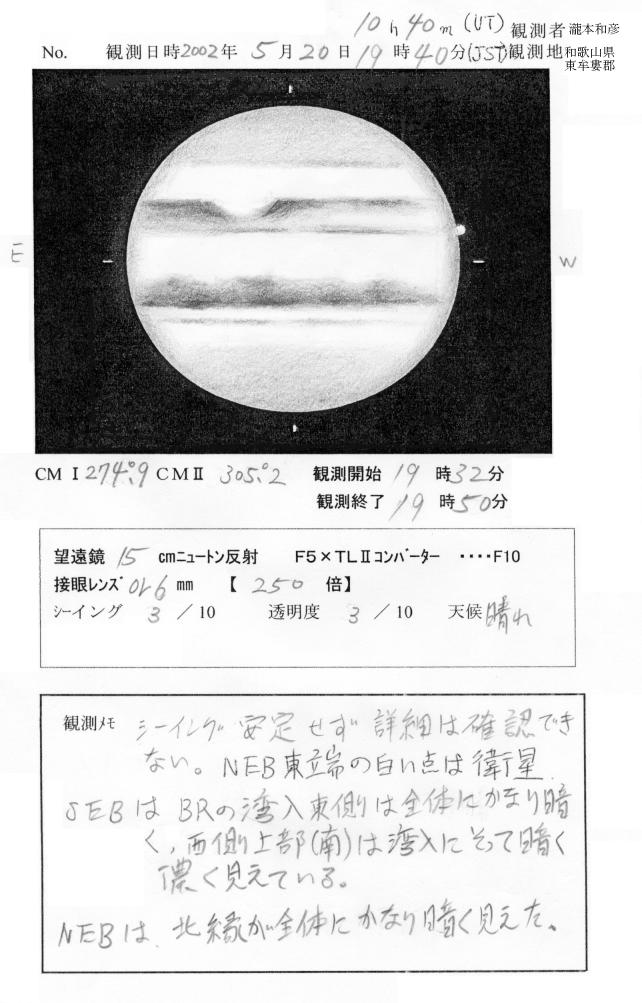 10h40m(UT) 観測者 瀧本和彦
No. 観測日時2002年 5月20日 19時40分(JST) 観測地 和歌山県
東牟婁郡
E
W
CM Ⅰ 274°.9 CMⅡ 305°.2 観測開始 19時32分
観測終了 19時50分
望遠鏡 15 cmニュートン反射 F5×TLⅡコンバーター ‥‥F10
接眼レンズ Or6 mm 【 250 倍】
シーイング 3 / 10 透明度 3 / 10 天候 晴れ
観測メモ シーイング安定せず詳細は確認でき
ない。NEB東端の白い点は衛星.
SEBは BRの湾入東側は全体にかなり暗
く、西側上部(南)は湾入にそって暗く
濃く見えている。
NEBは、北縁が全体にかなり暗く見えた。